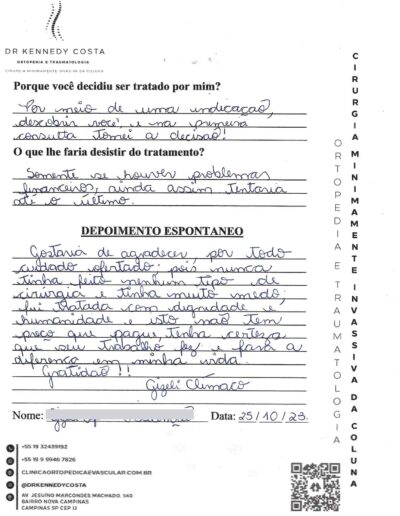 DR KENNEDY COSTA
ORTOPEDIA E TRAUMATOLOGIA
CIRURGIA MINIMAMENTE INVASIVA DA COLUNA
Porque você decidiu ser tratado por mim?
Por meio de uma indicação,
descobri você, e na primeira
consulta tomei a decisão!
O que lhe faria desistir do tratamento?
Somente se houver problemas
financeiros, ainda assim tentaria
até o último.
DEPOIMENTO ESPONTANEO
Gostaria de agradecer, por todo
cuidado ofertado; pois nunca
tinha feito nenhum tipo de
cirurgia e tinha muito medo;
fui tratada com dignidade e
humanidade e isto não tem
preço que pague, tenha certeza
que seu trabalho fez e fará a
diferença em minha vida.
Gratidão!!
Gizeli Clímaco
Nome: Data: 25/10/23.
+55 19 32439192
+55 19 9 9946 7826
CLINICAORTOPEDICAEVASCULAR.COM.BR
@DRKENNEDYCOSTA
AV JESUÍNO MARCONDES MACHADO, 540
BAIRRO NOVA CAMPINAS
CAMPINAS SP CEP 13
ORTOPEDIA E TRAUMATOLOGIA
CIRURGIA MINIMAMENTE INVASSIVA DA COLUNA